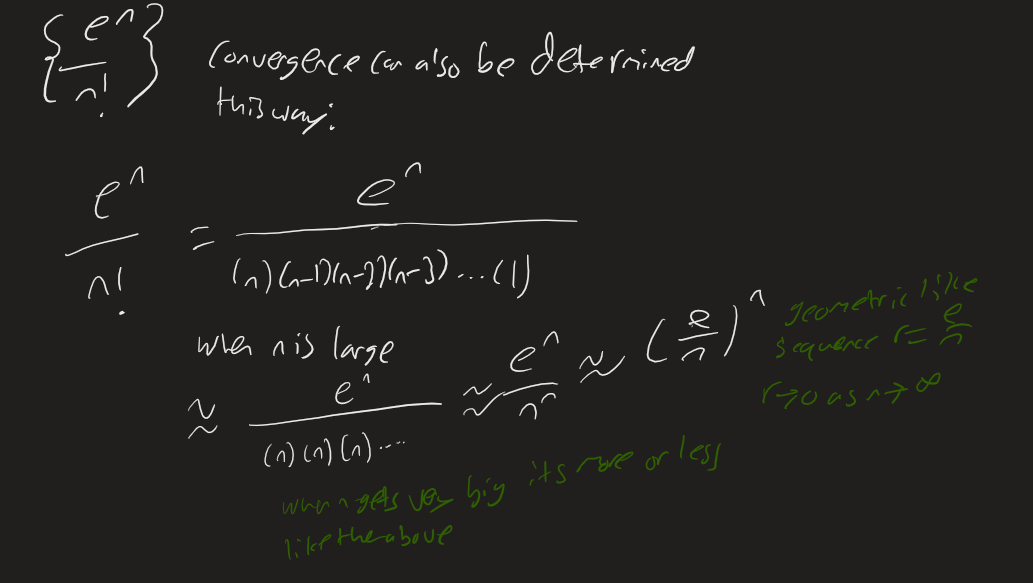 {e^n / n!} Convergence can also be determined
this way:
e^n / n! = e^n / (n)(n-1)(n-2)(n-3)...(1)
when n is large
≈ e^n / (n)(n)(n)... ≈ e^n / n^n ≈ (e/n)^n
geometric like
sequence r = e/n
r→0 as n→∞
when n gets very big its more or less
like the above